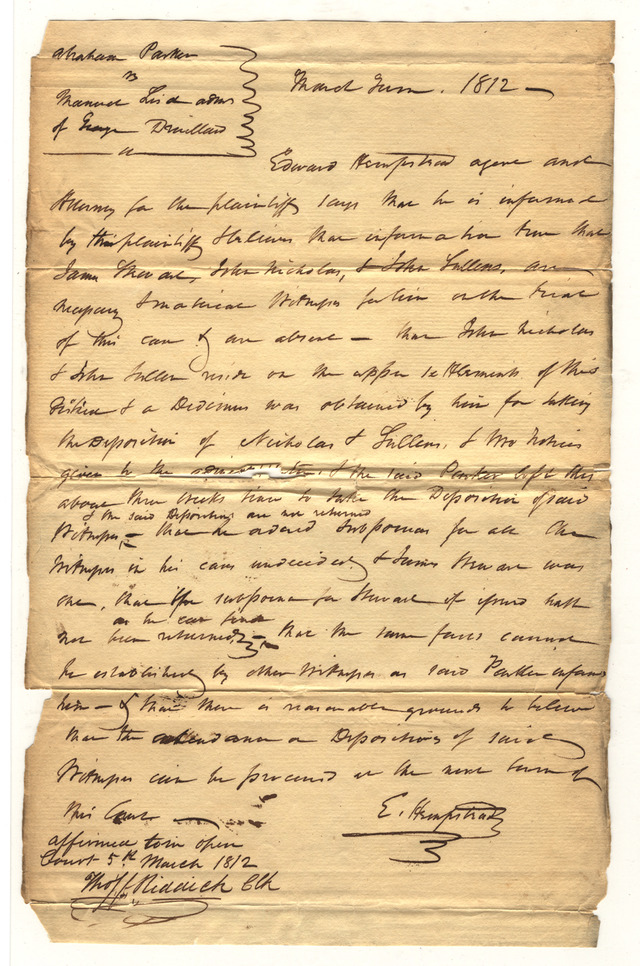 Abraham Parker
vs
Manuel Lisa admr
of George Drouillard
March Term. 1812 —
Edward Hempstead agent and
Attorney for the plaintiff says that he is informed
by the plaintiff & believes that information true that
James Steward, John Nicholas, & John Sullens, are
necessary & material Witnesses for him on the trial
of this case & are absent — that John Nicholas
& John Sullens reside on the upper settlements of this
District & a Dedimus was obtained by him for taking
the Deposition of Nicholas & Sullens, & two Notices
given to the & the said Parker left this
about three weeks since to take the Deposition of said
& the said Depositions are not returned
Witnesses, — that he ordered Subpoenas for all the
Witnesses in his cases undecided & James Steward was
one, that the subpoena for Steward if issued hath
as he can find
not been returned, — that the same facts cannot
be established by other Witnesses as said Parker informs
him — & that there is reasonable grounds to believe
that the attendance or Depositions of said
Witnesses can be procured at the next term of
this Court —
E. Hempstead
affirmed to in open
Court 5th March 1812
Thos F Riddick Clk